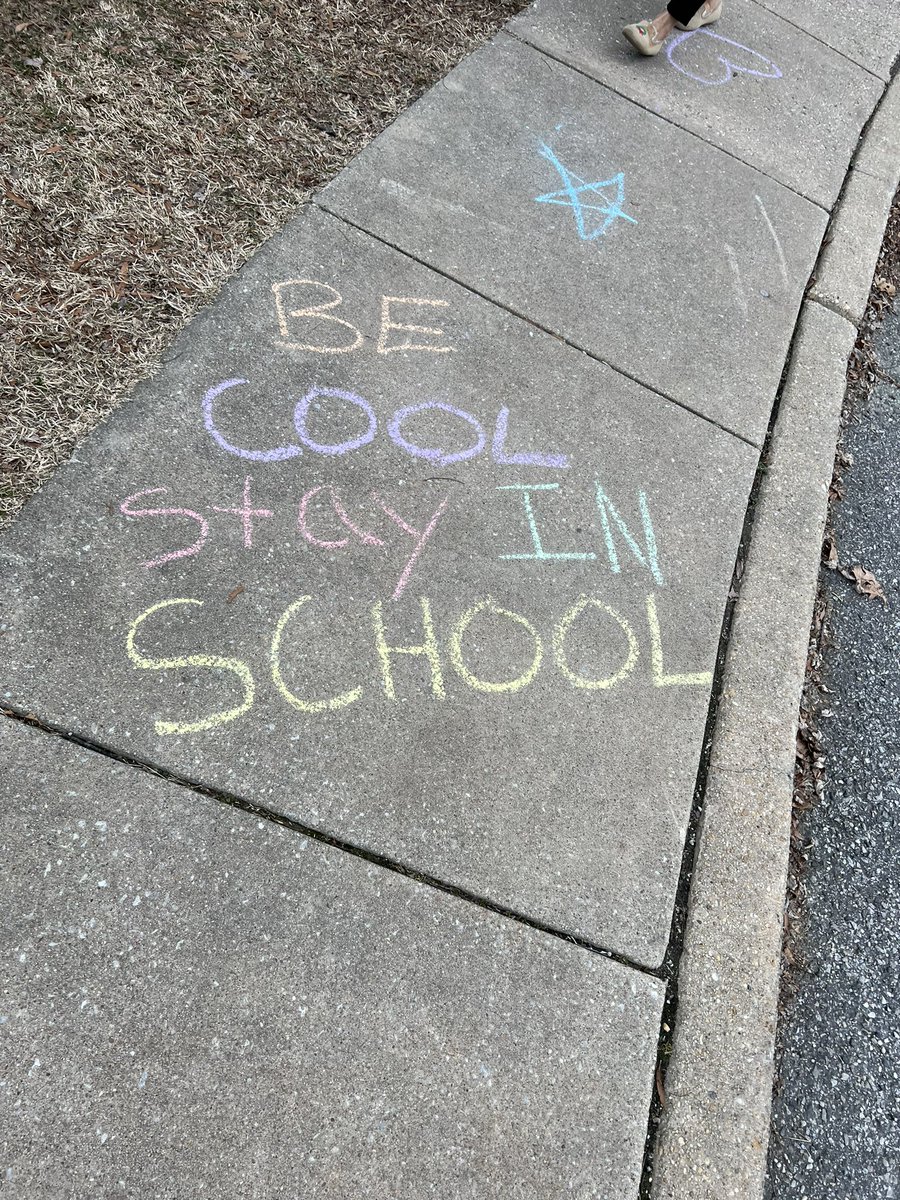 BE
COOL
Stay IN
SCHOOL